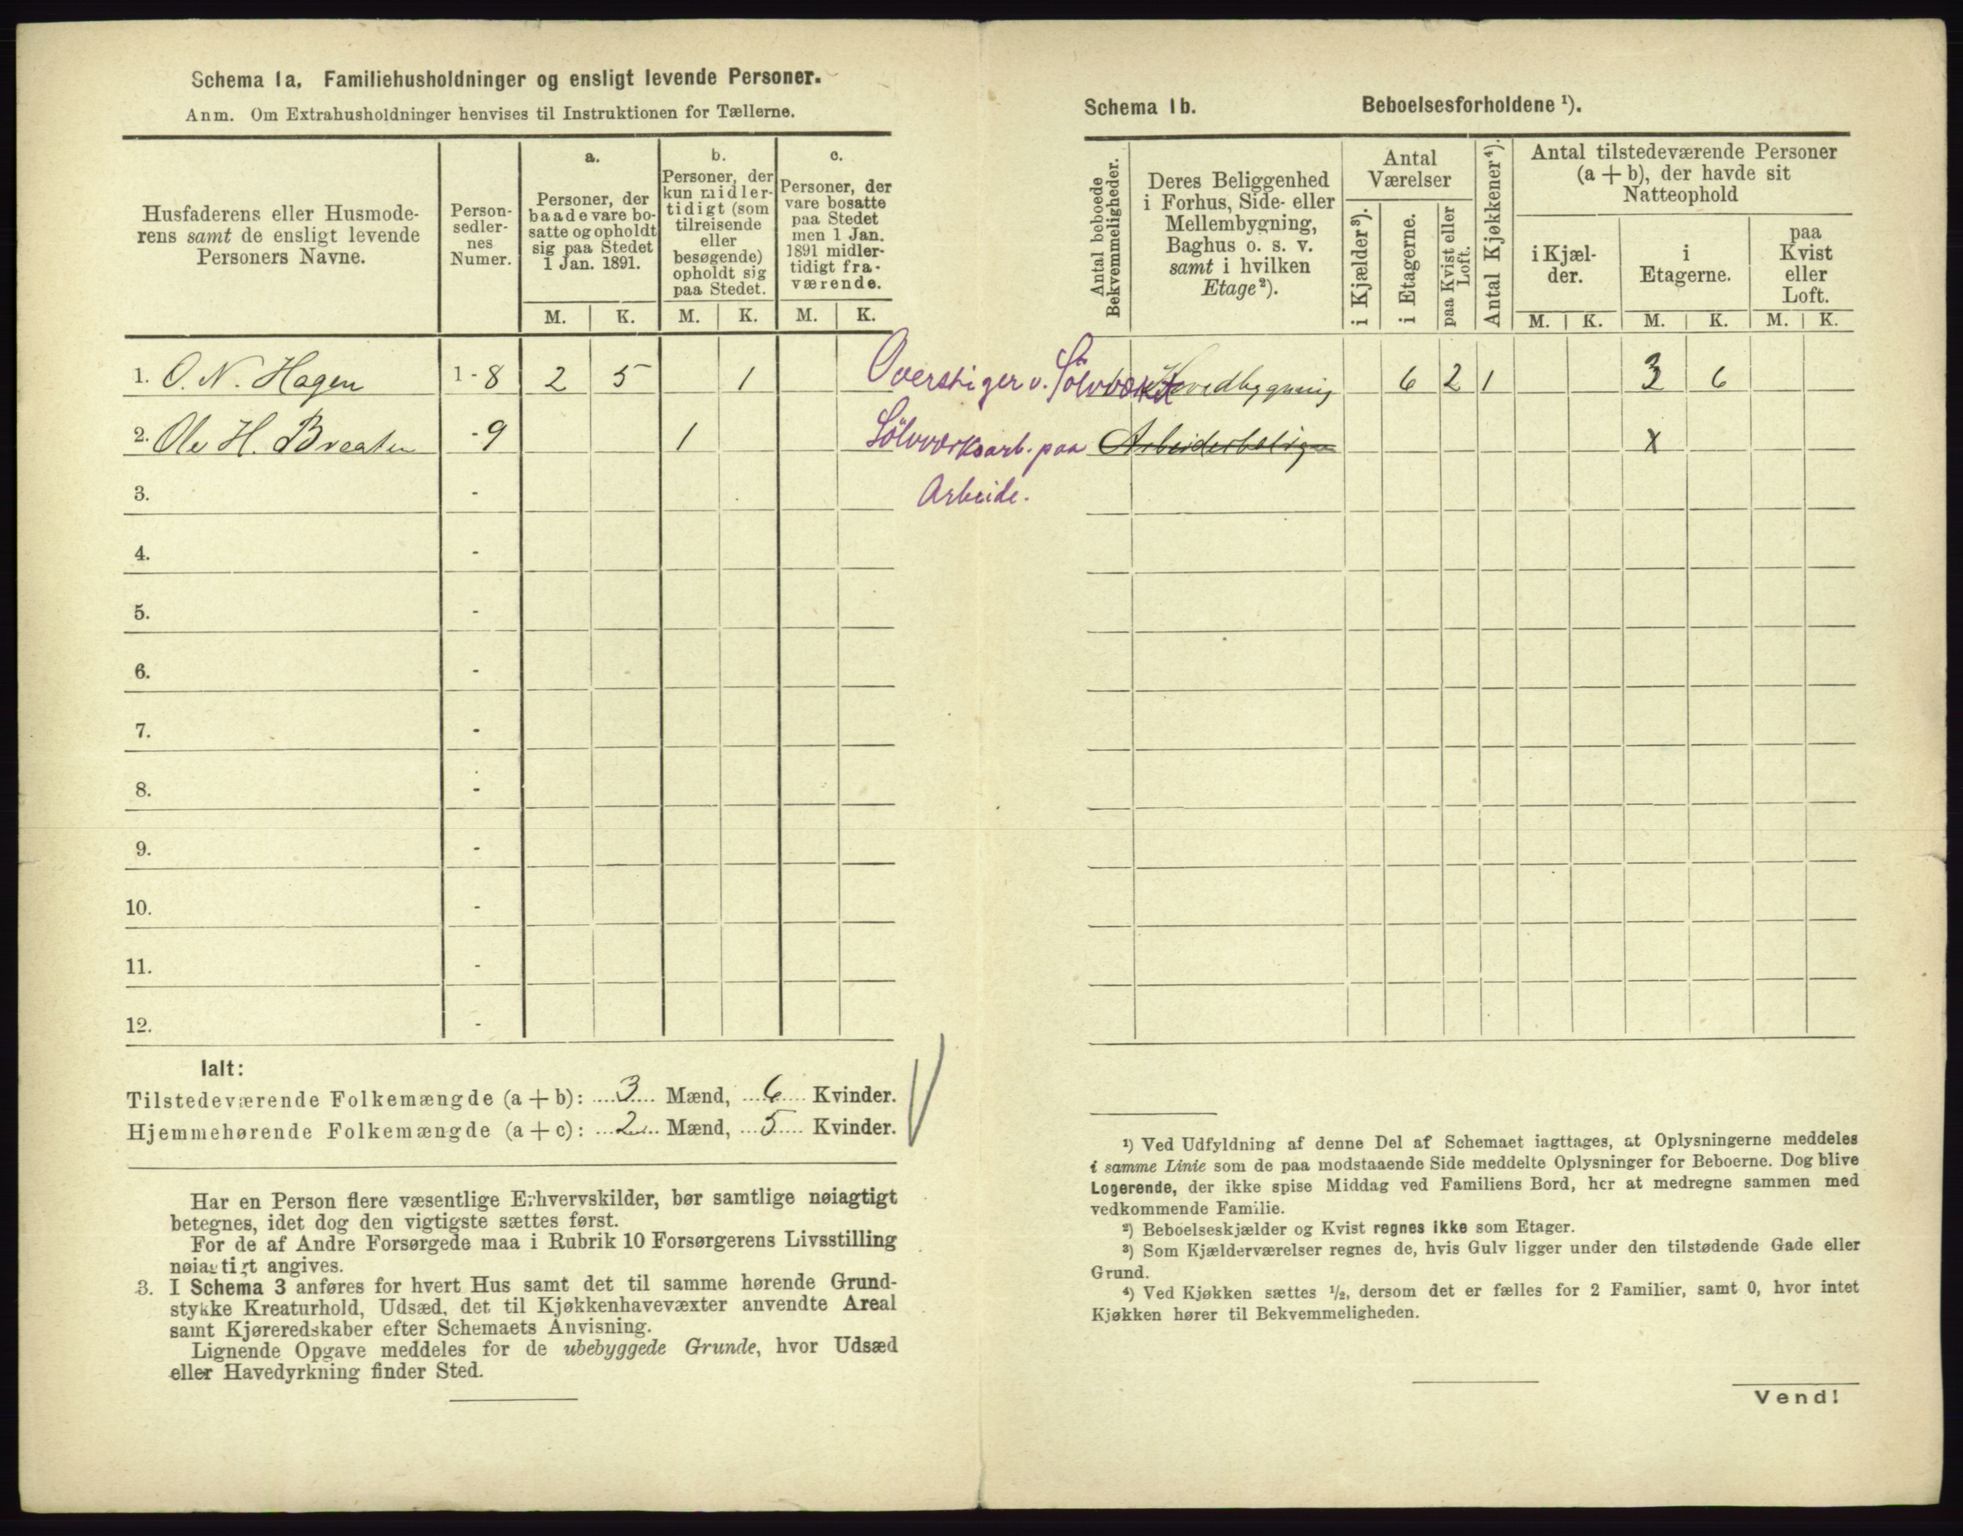 Schema 1a. Familiehusholdninger og ensligt levende Personer.
Anm. Om Extrahusholdninger henvises til Instruktionen for Tællerne.
Husfaderens eller Husmode-
rens samt de ensligt levende
Personers Navne.
Person-
sedler-
nes
Numer.
a.
Personer, der
baade vare bo-
satte og opholdt
sig paa Stedet
1 Jan. 1891.
b.
Personer, der
kun midler-
tidigt (som
tilreisende
eller
besøgende)
opholdt sig
paa Stedet.
c.
Personer, der
vare bosatte
paa Stedet
men 1 Jan.
1891 midler-
tidigt fra-
værende.
M. K. M. K. M. K.
1. O. N. Hagen 1 - 8 2 5 1
2. Ole H. Braaten - 9 1
3. -
4. -
5. -
6. -
7. -
8. -
9. -
10. -
11. -
12. -
Overstiger v. Sölvværket
Sölvværksarb. paa
Arbeide.
Ialt:
Tilstedeværende Folkemængde (a + b): 3 Mænd, 6 Kvinder.
Hjemmehørende Folkemængde (a + c): 2 Mænd, 5 Kvinder.
Har en Person flere væsentlige Erhvervskilder, bør samtlige nøiagtigt
betegnes, idet dog den vigtigste sættes først.
For de af Andre Forsørgede maa i Rubrik 10 Forsørgerens Livsstilling
nøiagtigt angives.
3. I Schema 3 anføres for hvert Hus samt det til samme hørende Grund-
stykke Kreaturhold, Udsæd, det til Kjøkkenhavevæxter anvendte Areal
samt Kjøreredskaber efter Schemaets Anvisning.
Lignende Opgave meddeles for de ubebyggede Grunde, hvor Udsæd
eller Havedyrkning finder Sted.
Schema 1b. Beboelsesforholdene ¹).
Antal beboede
Bekvemmeligheder.
Deres Beliggenhed
i Forhus, Side- eller
Mellembygning,
Baghus o. s. v.
samt i hvilken
Etage²).
Antal
Værelser
i Kjælder³).
i Etagerne.
paa Kvist eller
Loft.
Antal Kjøkkener⁴).
Antal tilstedeværende Personer
(a + b), der havde sit
Natteophold
i Kjæl-
der.
i
Etagerne.
paa
Kvist
eller
Loft.
M. K. M. K. M. K.
Hovedbygning 6 2 1 3 6
Arbeiderbolig x
¹) Ved Udfyldning af denne Del af Schemaet iagttages, at Oplysningerne meddeles
i samme Linie som de paa modstaaende Side meddelte Oplysninger for Beboerne. Dog blive
Logerende, der ikke spise Middag ved Familiens Bord, her at medregne sammen med
vedkommende Familie.
²) Beboelseskjælder og Kvist regnes ikke som Etager.
³) Som Kjælderværelser regnes de, hvis Gulv ligger under den tilstødende Gade eller
Grund.
⁴) Ved Kjøkken sættes ½, dersom det er fælles for 2 Familier, samt 0, hvor intet
Kjøkken hører til Bekvemmeligheden.
Vend!